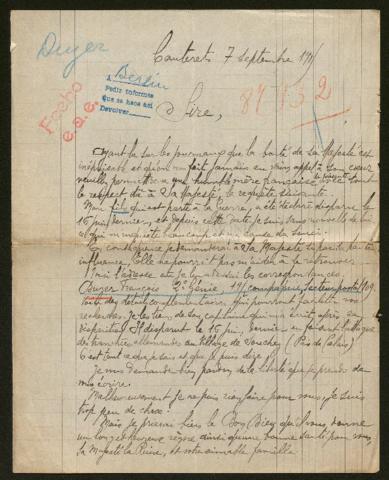 Duyer
Cauterets 7 Septembre 191
A Berlin
Pedir informes
que se hace así
Devolver
Fecho
e.a.e.
87132
Sire,
Ayant lu sur les journaux que la bonté de Sa Majesté est
et qu'on fait jamais en vain appel à son cœur
permettez à une humble mère française avec tout
le respect dû à Sa Majesté, la requête suivante.
Mon fils qui est parti à la guerre, a été déclaré disparu le
16 juin dernier, et depuis cette date je suis sans nouvelle de lui
ce qui m'inquiète beaucoup et me donne du souci.
En conséquence je demanderai à Sa Majesté
influence, Elle ne pourrait pas m'aider à le retrouver.
Voici l'adresse et je lui
François 2e Génie, 19/ compagnie, Secteur postal 109.
Voilà des détails complémentaires qui pourront faciliter vos
recherches. Je les tiens de son capitaine qui m'a écrit après sa
disparition. Il disparut le 16 juin, dernier en faisant l'attaque
des tranchées allemandes au village de Souchez (Pas de Calais)
C'est tout ce que je sais et que je puis dire
Je vous demande bien pardon de la liberté que je prends de
vous écrire.
Malheureusement je ne puis rien faire pour vous, je suis
trop peu de chose!
Mais je prierai bien le Bon Dieu qu'il vous donne
un long et heureux règne ainsi qu'une bonne santé pour vous,
Sa Majesté la Reine, et votre aimable famille.